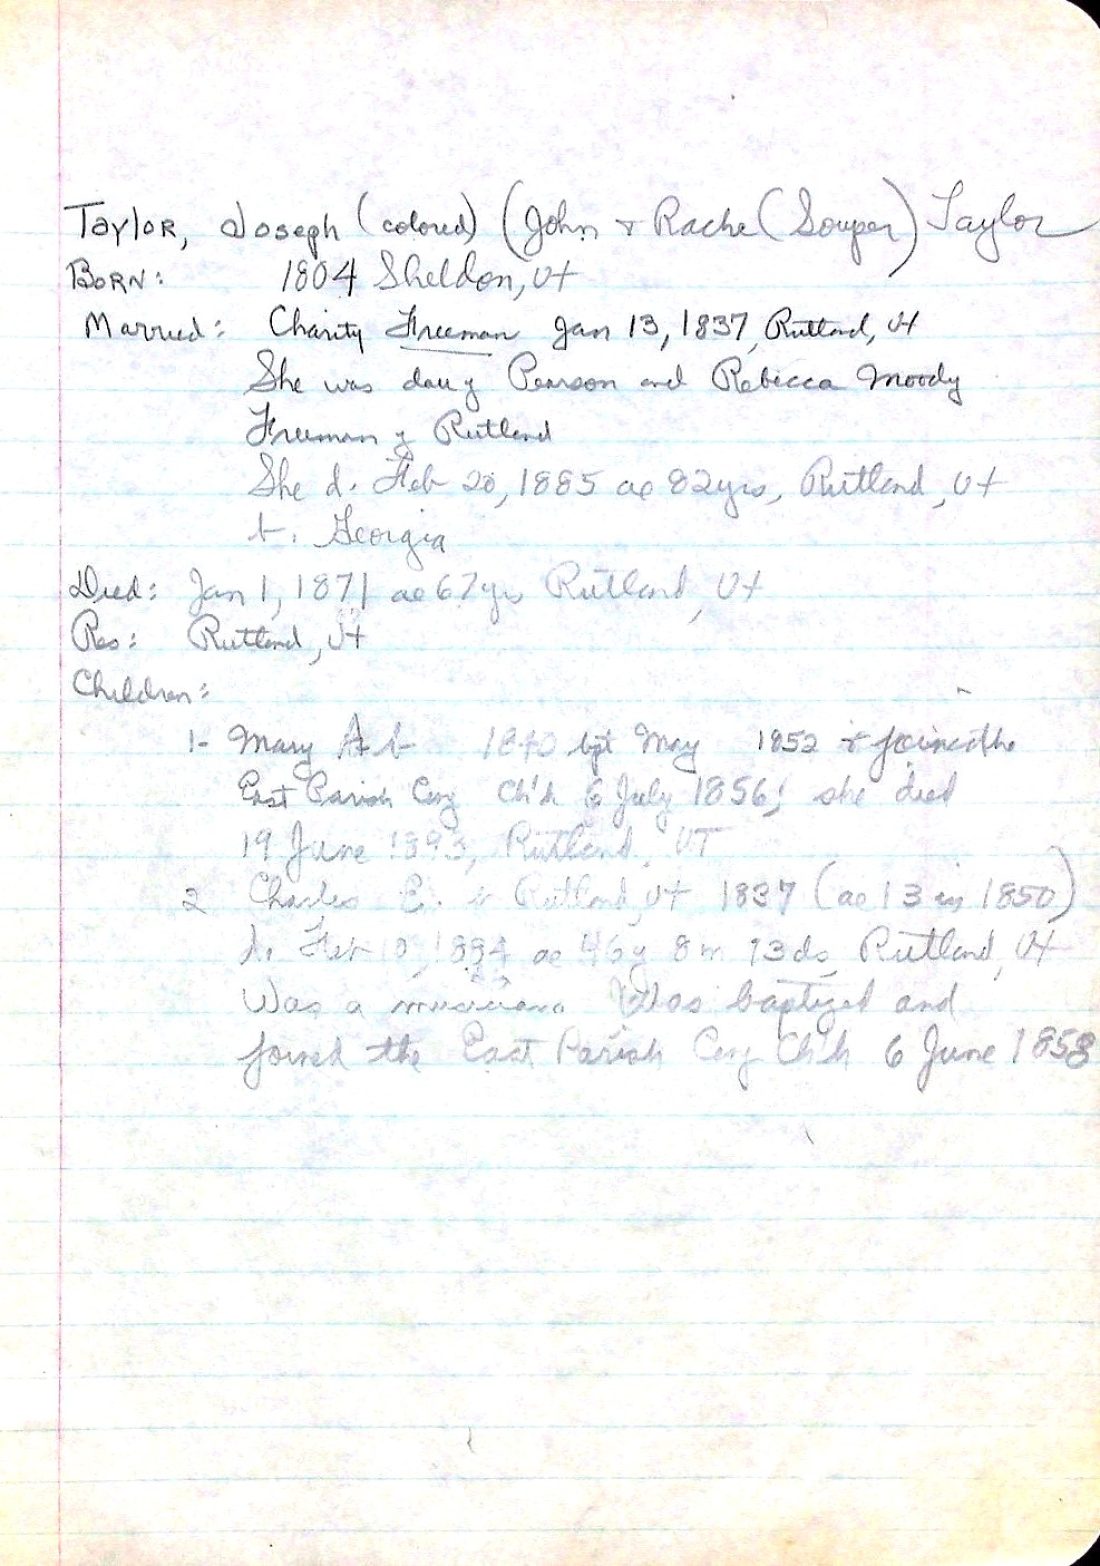 Taylor, Joseph (colored) (John + Rache (Souper) Taylor
Born: 1804 Sheldon, Vt
Married: Charity Freeman Jan 13, 1837, Rutland, Vt
She was dau of Pearson and Rebecca Moody
Freeman of Rutland
She d. Feb 20, 1885 ae 82yrs, Rutland, Vt
b. Georgia
Died: Jan 1, 1871 ae 67yrs Rutland, Vt
Res: Rutland, Vt
Children:
1- Mary A b 1840 bpt May 1852 + joined the
East Parish Cong Ch'h 6 July 1856; she died
19 June 1893, Rutland, VT
2 Charles E. b Rutland, Vt 1837 (ae 13 in 1850)
d. Feb 10, 1884 ae 46y 8m 13ds, Rutland, Vt
Was a musician. Was baptized and
joined the East Parish Cong Ch'h 6 June 1858